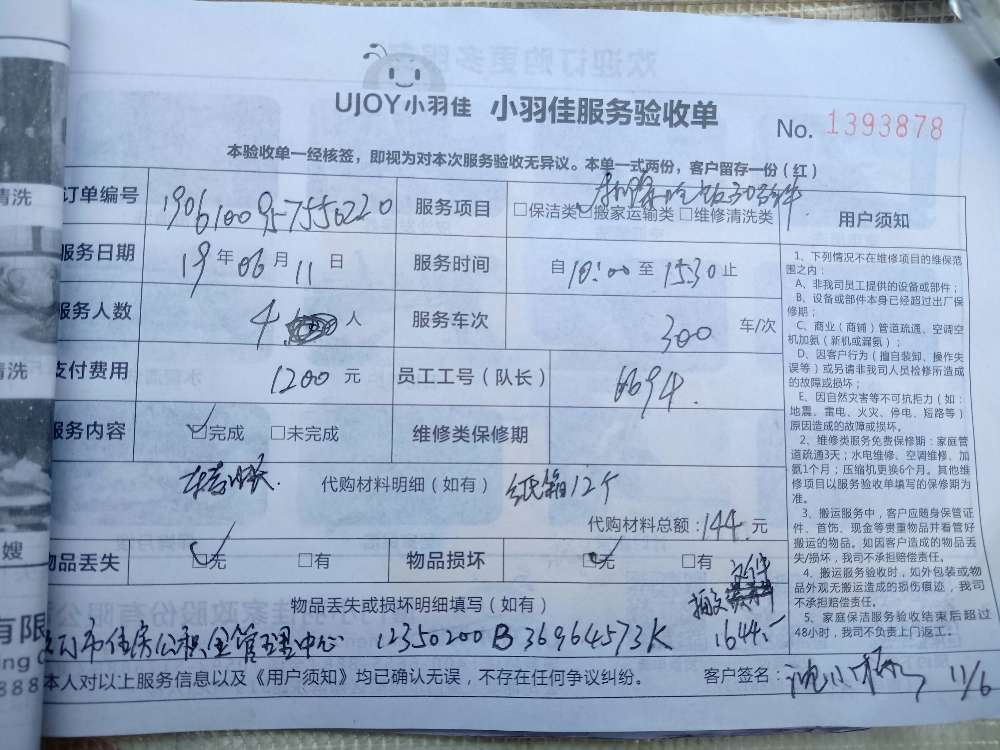 UJOY小羽佳 小羽佳服务验收单
No. 1393878
本验收单一经核签，即视为对本次服务验收无异议。本单一式两份，客户留存一份（红）
订单编号 190610095-7556220 服务项目 □保洁类 ☑搬家运输类 □维修清洗类
服务日期 19年06月11日 服务时间 自10:00至15:30止
服务人数 4 人 服务车次 300 车/次
支付费用 1200元 员工工号（队长） 6694.
服务内容 ☑完成 □未完成 维修类保修期
代购材料明细（如有） 纸箱12个
代购材料总额：144.元
物品丢失 ☑无 □有 物品损坏 ☑无 □有
文件
物品丢失或损坏明细填写（如有）
市住房公积金管理中心 12350200B36964573K 1644.-
本人对以上服务信息以及《用户须知》均已确认无误，不存在任何争议纠纷。 客户签名： 11/6
用户须知
1、下列情况不在维修项目的维保范
围之内：
A、非我司员工提供的设备或部件；
B、设备或部件本身已经超过出厂保
修期；
C、商业（商铺）管道疏通、空调空
机加氨（新机或漏氨）；
D、因客户行为（擅自装卸、操作失
误等）或另请非我司人员检修所造成
的故障或损坏；
E、因自然灾害等不可抗拒力（如：
地震、雷电、火灾、停电、短路等）
原因造成的故障或损坏。
2、维修类服务免费保修期：家庭管
道疏通3天；水电维修、空调维修、加
氨1个月；压缩机更换6个月。其他维
修项目以服务验收单填写的保修期为
准。
3、搬运服务中，客户应随身保管证
件、首饰、现金等贵重物品并看管好
搬运的物品。如因客户造成的物品丢
失/损坏，我司不承担赔偿责任。
4、搬运服务验收时，如外包装或物
品外观无搬运造成的损伤痕迹，我司
不承担赔偿责任。
5、家庭保洁服务验收结束后超过
48小时，我司不负责上门返工。
清洗
清洗
嫂
有限
888